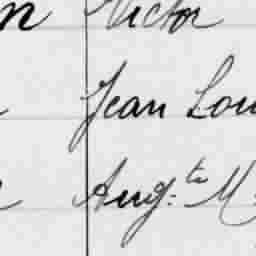 Victor
Jean Lou
Aug.te M